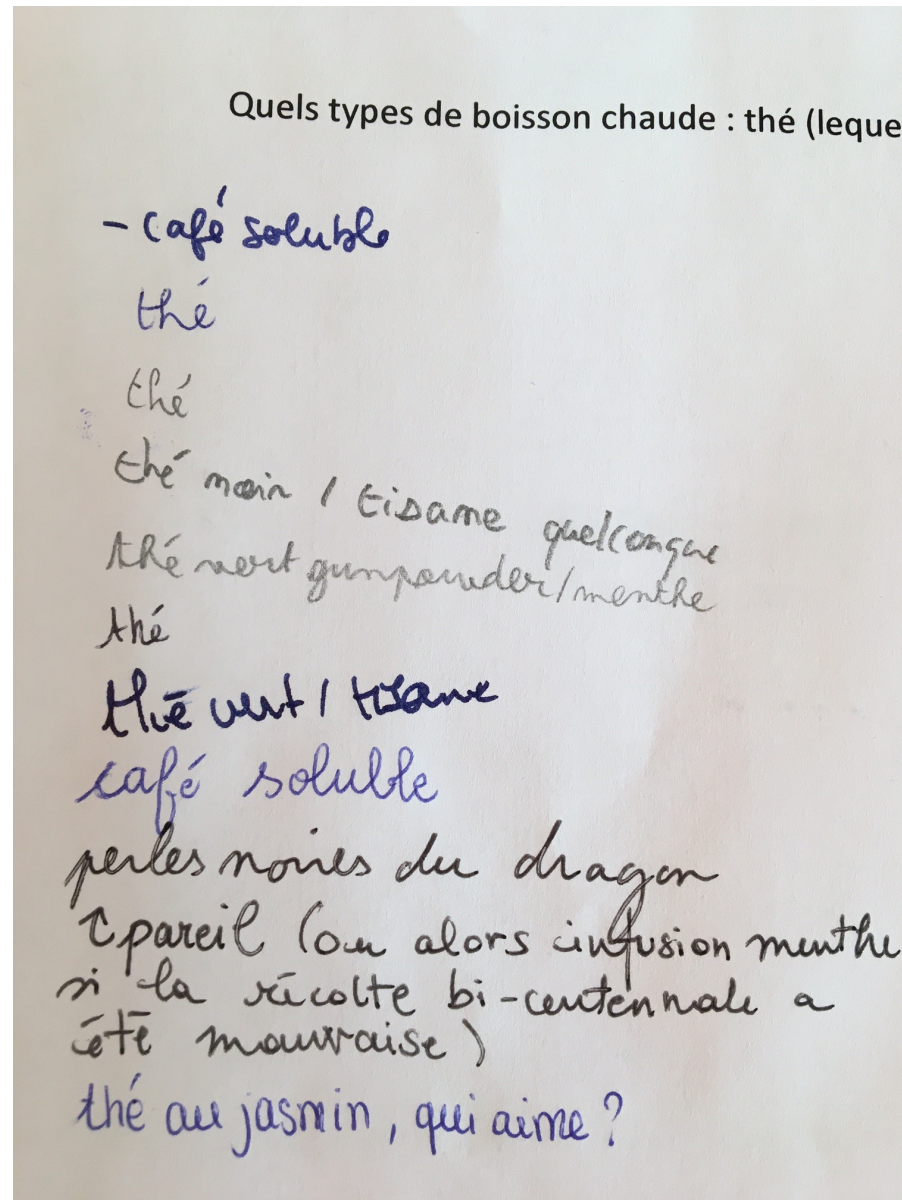 Quels types de boisson chaude : thé (leque
- café soluble
thé
thé
thé noir / tisane quelconque
thé vert gunpowder/menthe
thé
thé vert / tisane
café soluble
perles noires du dragon
↑ pareil (ou alors infusion menthe
si la récolte bi-centennale a
été mauvaise)
thé au jasmin, qui aime ?